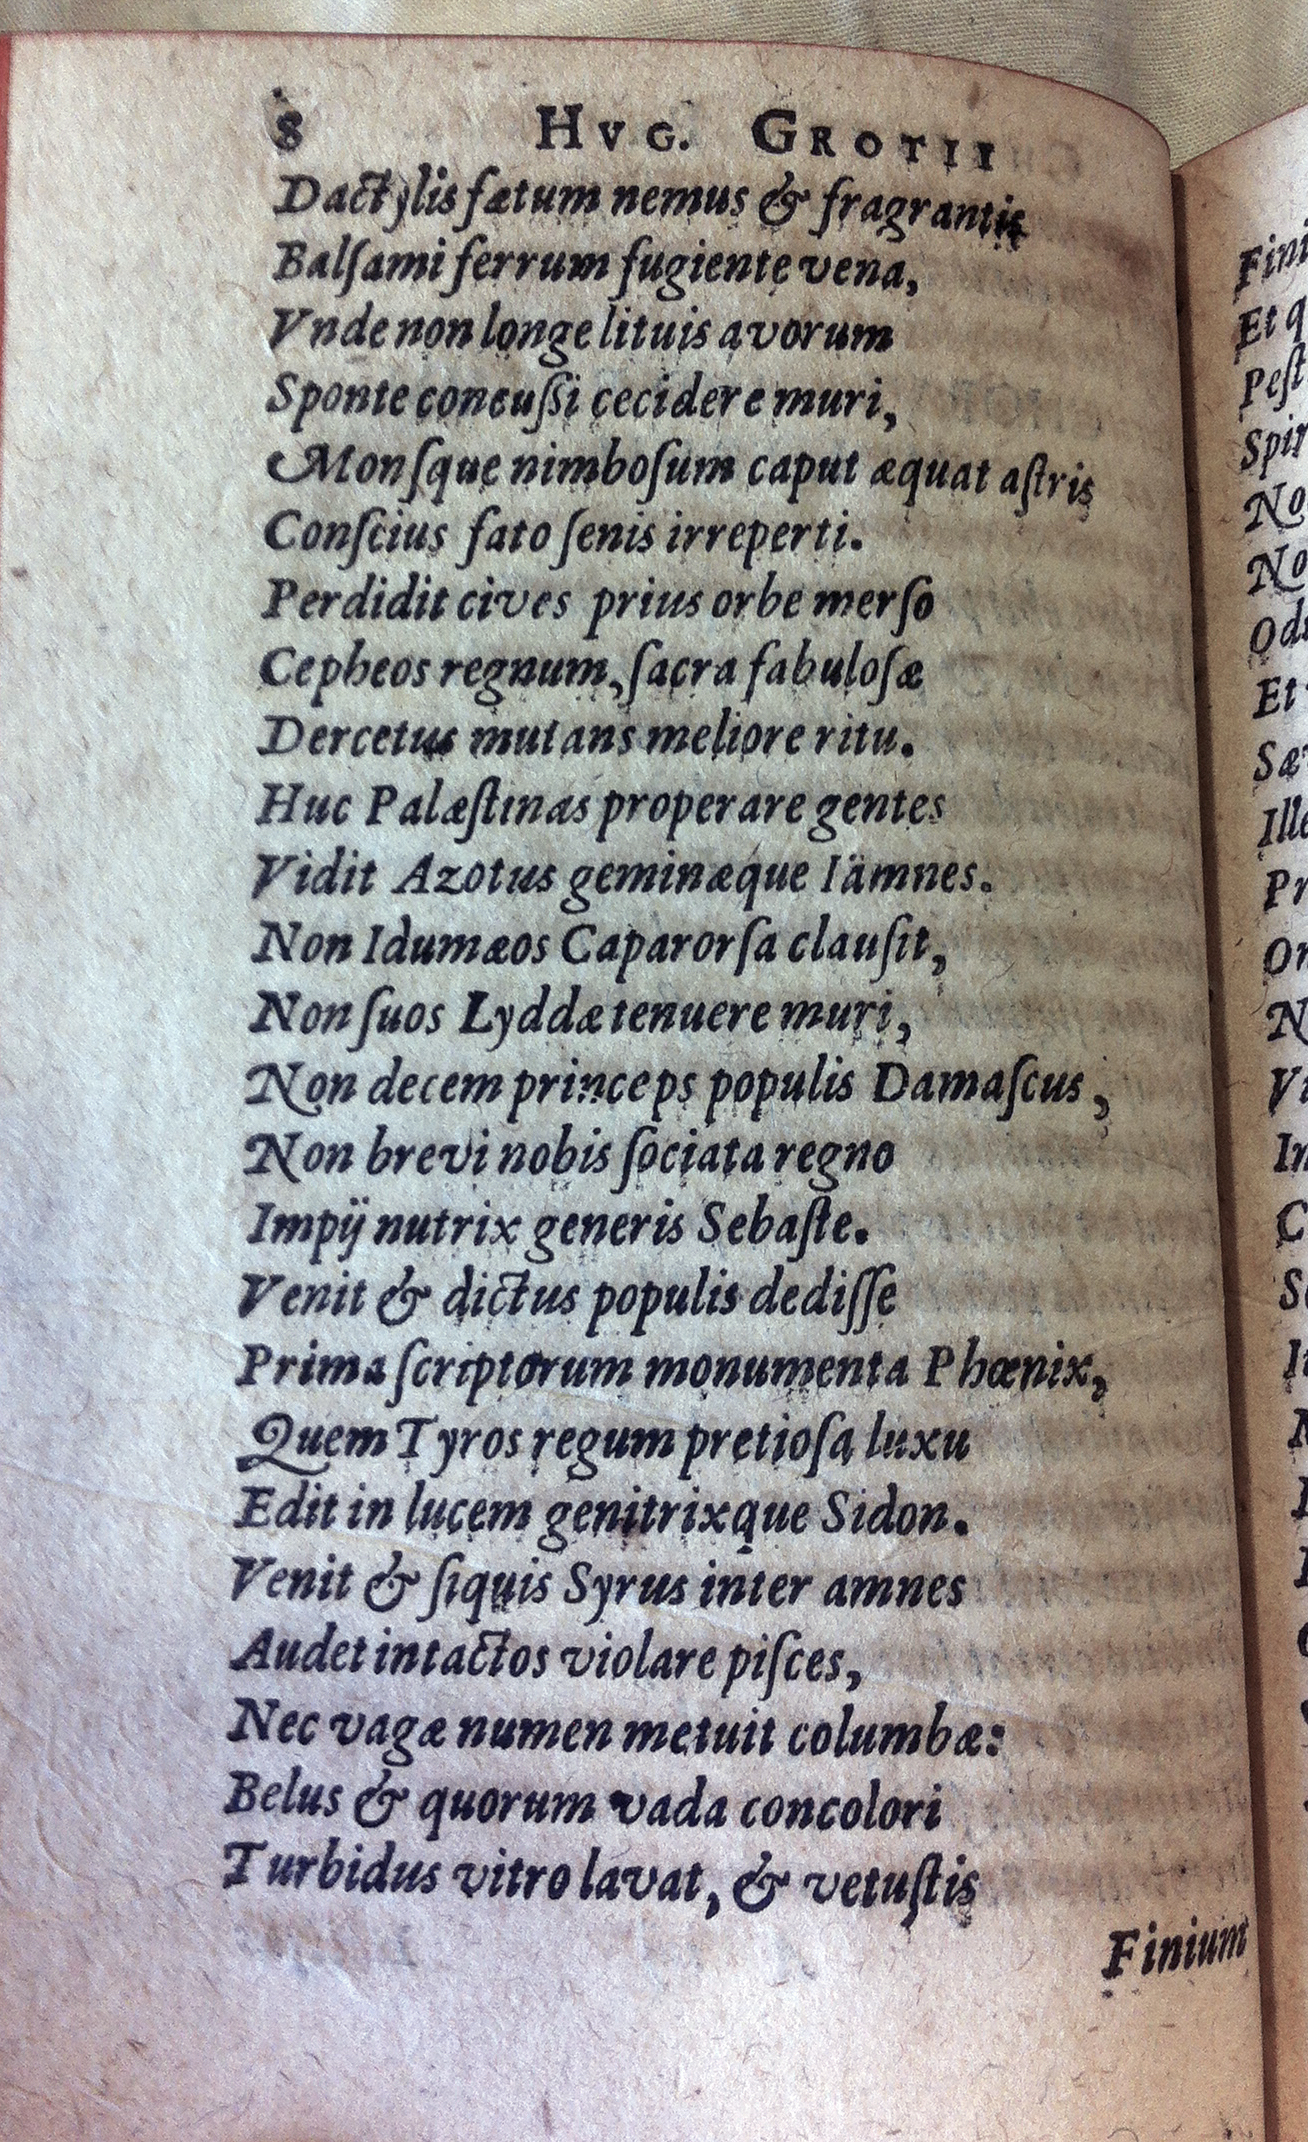 8 HVG. GROTII
Dactylis fætum nemus & fragrantis
Balſami ferrum fugiente vena,
Vnde non longe lituis avorum
Sponte concuſſi cecidere muri,
Monſque nimboſum caput æquat aſtris
Conſcius fato ſenis irreperti.
Perdidit cives prius orbe merſo
Cepheos regnum, ſacra fabuloſæ
Dercetus mutans meliore ritu.
Huc Palæſtinas properare gentes
Vidit Azotus geminæque Iämnes.
Non Idumæos Caparorſa clauſit,
Non ſuos Lyddæ tenuere muri,
Non decem princeps populis Damaſcus,
Non brevi nobis ſociata regno
Impij nutrix generis Sebaſte.
Venit & dictus populis dediſſe
Prima ſcriptorum monumenta Phœnix,
Quem Tyros regum pretioſa luxu
Edit in lucem genitrixque Sidon.
Venit & ſiquis Syrus inter amnes
Audet intactos violare piſces,
Nec vagæ numen metuit columbæ:
Belus & quorum vada concolori
Turbidus vitro lavat, & vetuſtis
Finium
Et
No
No
Et